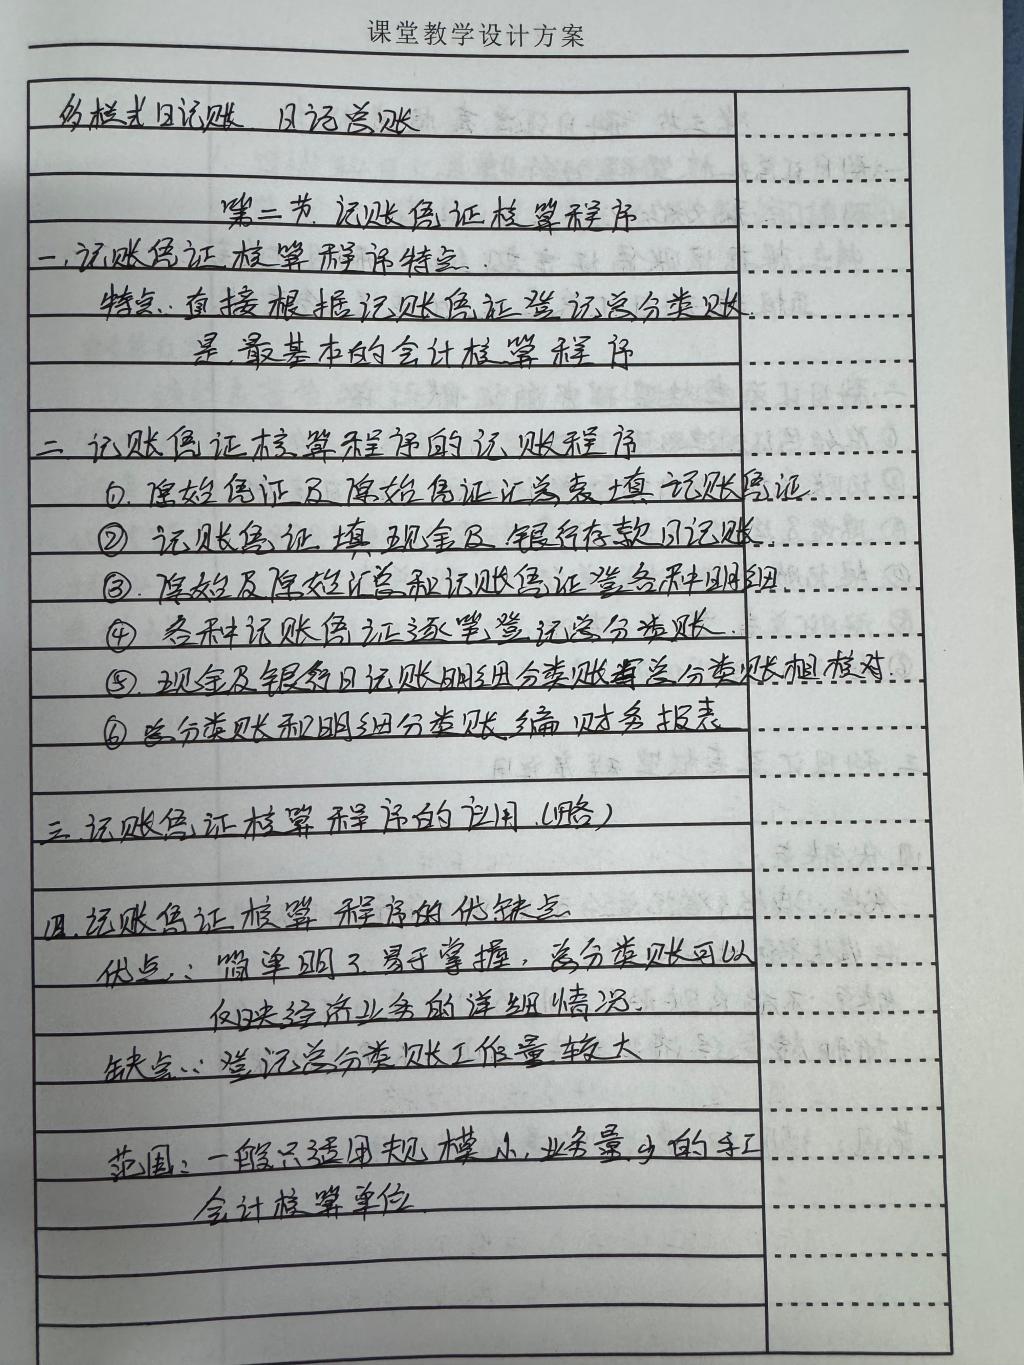 课堂教学设计方案
多栏式日记账、日记总账
第二节、记账凭证核算程序
一、记账凭证核算程序特点:
特点:直接根据记账凭证登记总分类账
是最基本的会计核算程序
二、记账凭证核算程序的记账程序
①.原始凭证及原始凭证汇总表填记账凭证
②记账凭证填现金及银行存款日记账
③.原始及原始汇总和记账凭证登各种明细
④各种记账凭证逐笔登记总分类账.
⑤.现金及银行日记账明细分类账与总分类账相核对.
⑥总分类账和明细分类账编财务报表
三.记账凭证核算程序的应用.(略)
四.记账凭证核算程序的优缺点
优点:简单明了.易于掌握,总分类账可以
反映经济业务的详细情况.
缺点:登记总分类账工作量较大
范围:一般只适用规模小,业务量少的手工
会计核算单位.